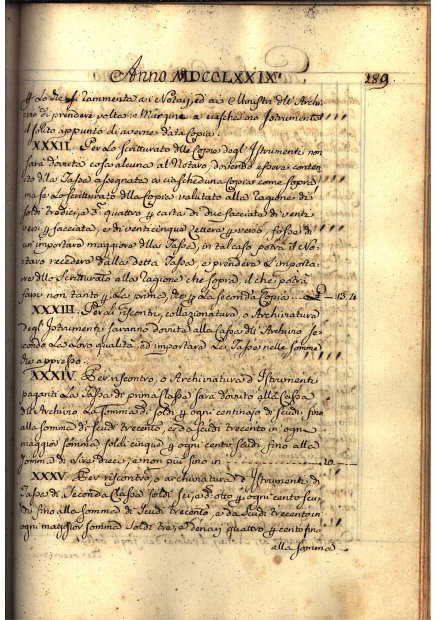 Anno MDCCLXXIX. 289
si rammenta a i Notarj, ed a i Ministri dell' Archi-
vio di prendere volta in Margine a ciaschedun Istrumento
il solito appunto di averne data Copia.
XXXII. Per la scritturato dlle Copie degl' Istrumenti non
sarà dovuta cosa alcuna al Notaro, dovendo essere conten-
to dlla Tassa assegnata a ciascheduna Copia come sopra,
ma se lo scritturato dlla Copia valutato alla ragione di
soldi tredici, e d. quattro p carta di due facciate di venti
versi p facciata, e di venti cinque lettere p verso, fosse di
un' importare maggiore dlla Tassa, in tal caso potrà il No-
taro recedere dalla detta Tassa, e prendere l' importa-
re dllo scritturato alla ragione che sopra, il che potrà
farsi non tanto p la prima, che p la seconda Copia 13.4
XXXIII. Per li riscontri, collazionatura, o Archiviatura
degl' Istrumenti saranno dovute alla Cassa dll' Archivio se-
condo la loro qualità, ed importare le Tasse nelle somme
che appresso.
XXXIV. Per riscontro, o Archiviatura d' Istrumenti
paganti la Tassa di prima Classe sarà dovuto alla Cassa
dll' Archivio la somma di soldi p ogni centinajo di scudi fino
alla somma di scudi trecento, e da scudi trecento in ogni
maggior somma soldi cinque p ogni cento scudi fino alla
somma di Lire dieci, e non più sino in 10.
XXXV. Per riscontro, o archiviatura d' Istrumenti di
Tassa di Seconda Classe soldi sei, e d. otto p ogni cento scu-
di fino alla somma di scudi trecento, e da scudi trecento in
ogni maggior somma soldi tre, e denari quattro p cento fino
alla somma